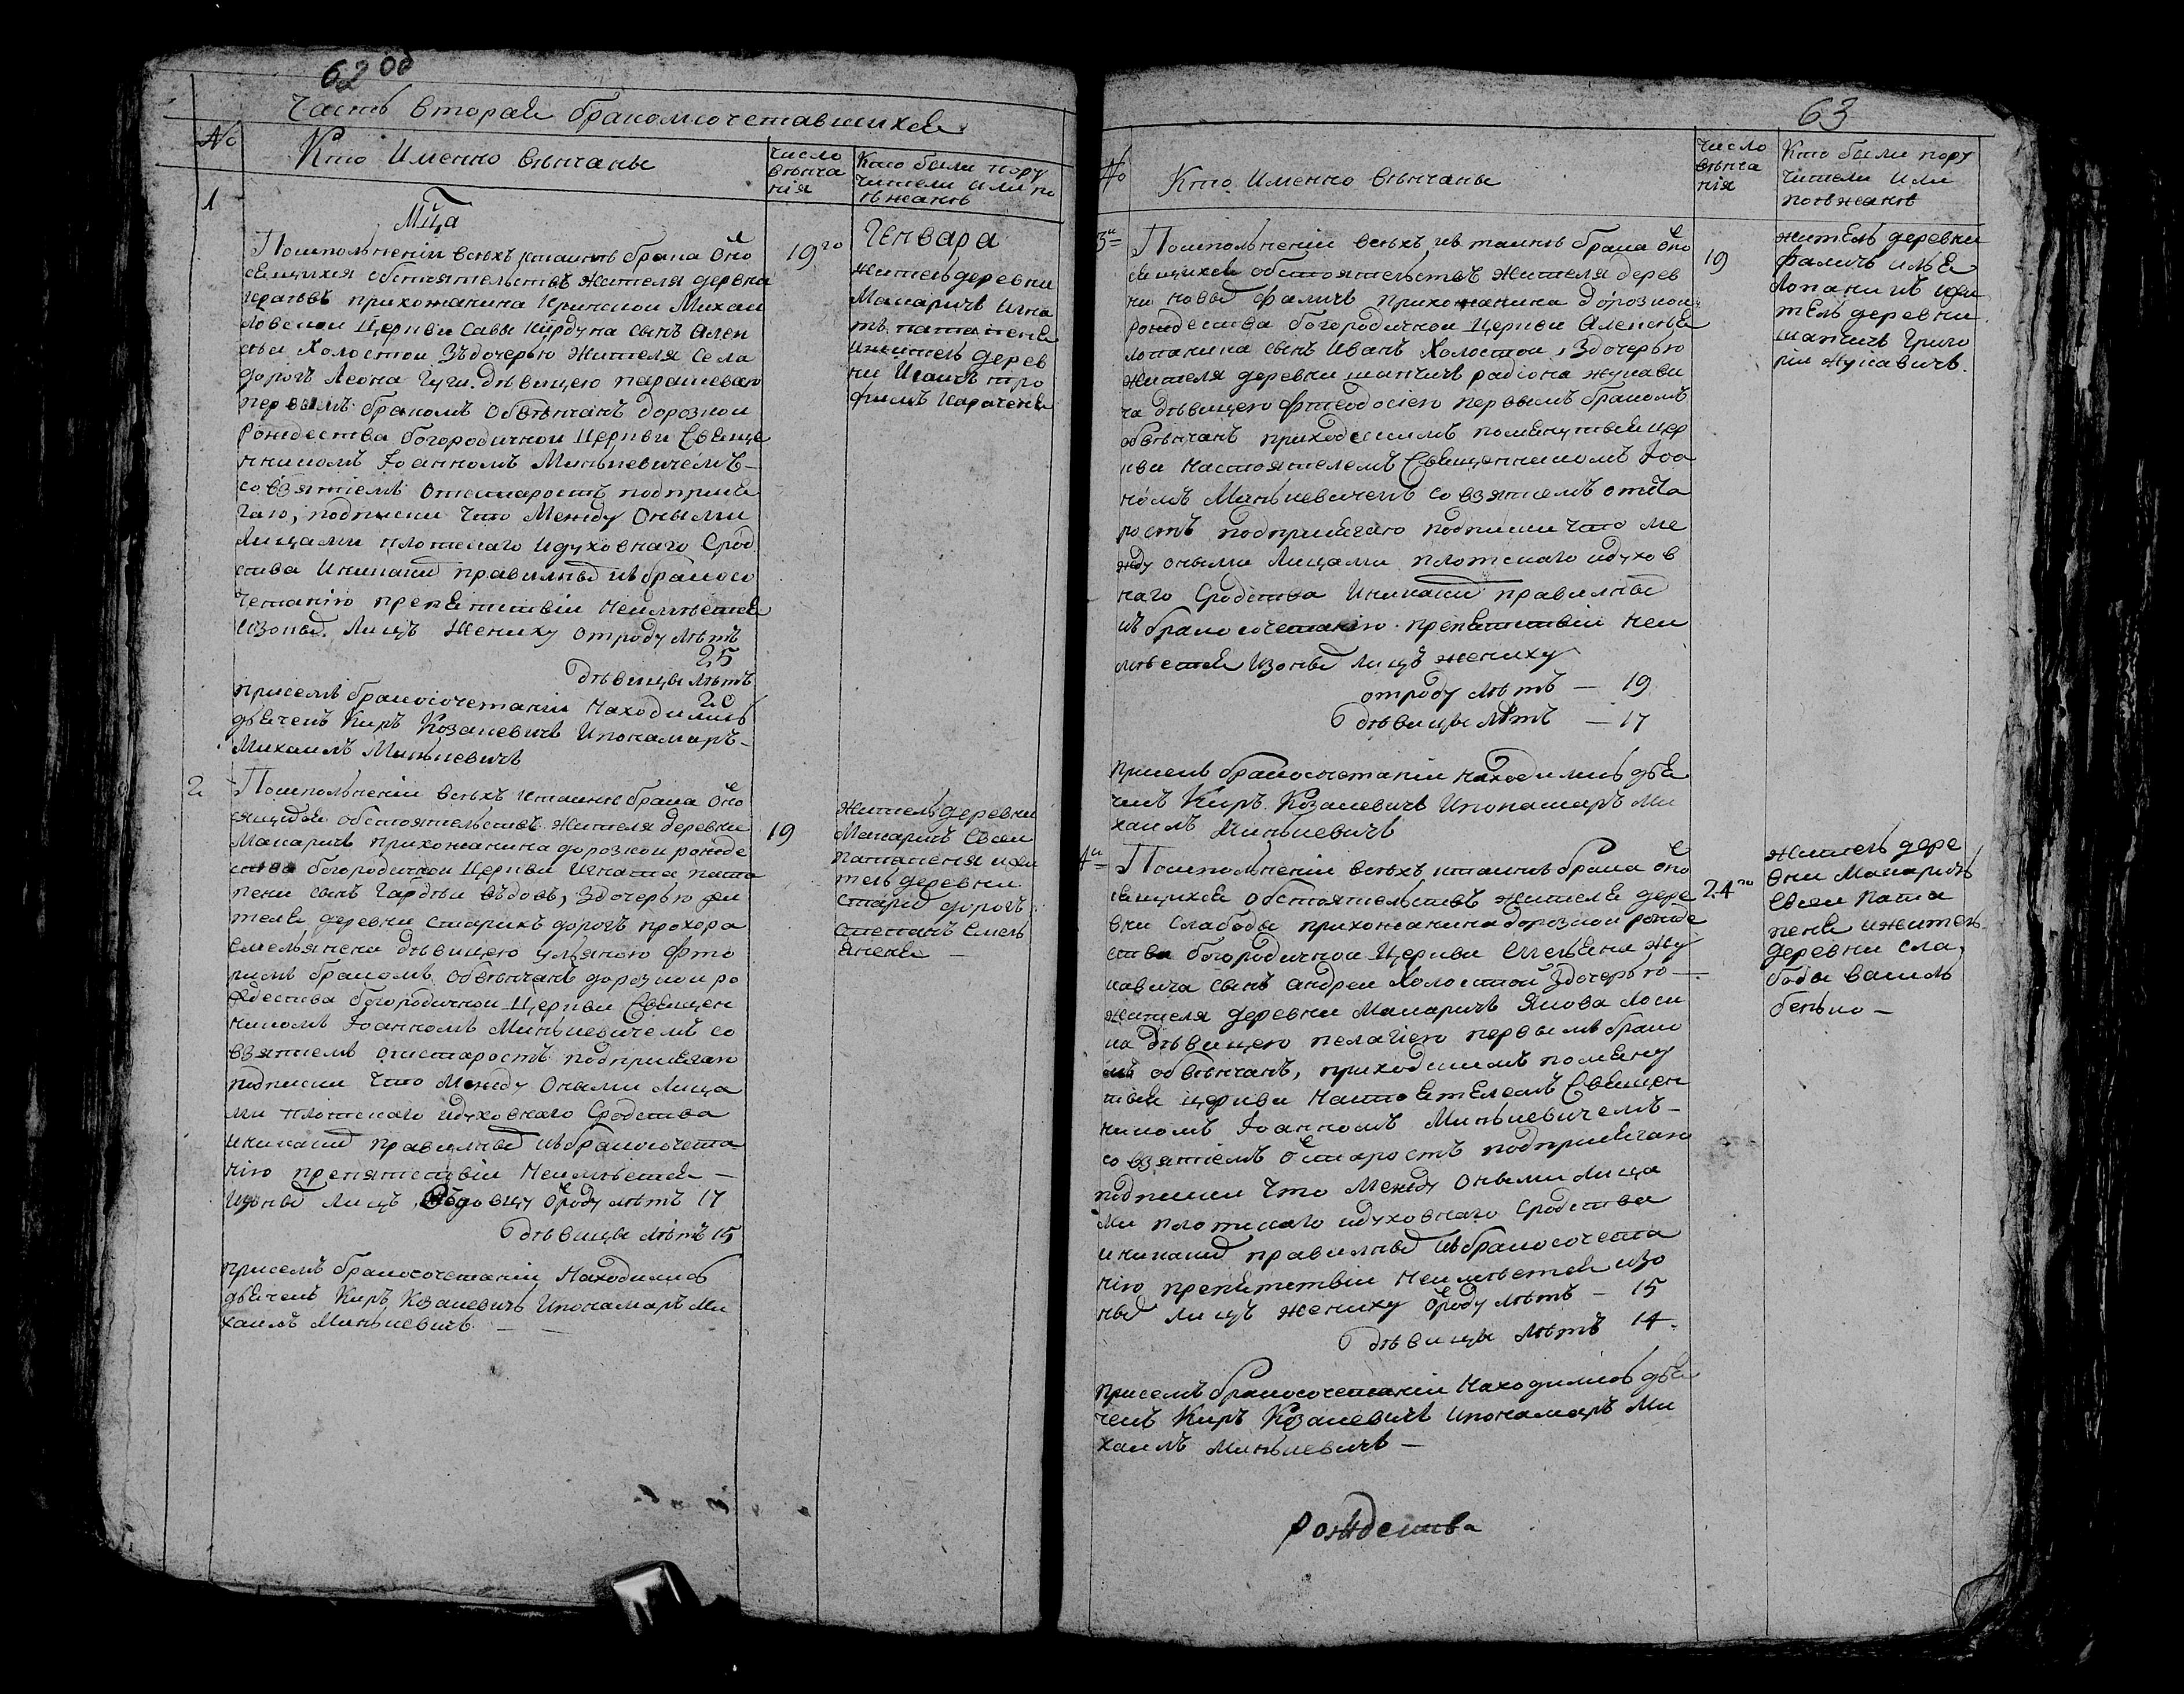 62 об
Часть вторая бракомсочетавшихся
№
Кто Именно венчаны
число
венча
нія
Кто были пору
чители или по
езжане
1
Мца
Генвара
Поисполненіи всехъ ктаинѣ брака Око
сящихся обстоятельствѣ жителя деревни
прихожанина Михаи
ловской Церкви Савы Курдуна сынъ Алек
сеи Холостои Зъдочерью жителя села
дорогъ Леона Гуги девицею парасевею
первымъ бракомъ Обвенчанъ дорозкои
Рождества богородичнои Церкви Священ
никомъ Іоанномъ Минкевичемъ
совзятіемъ Отстаростъ подприся
гаю, подписки что Между Оными
Лицами плотскаго идуховнаго Срод
ства Иникакихъ правилныхъ кѣбракосо
четанію препятствіи неимеется
Изоныхъ Лицъ Жениху отроду летъ
25
Девицы летъ
20
присемъ бракосочетаніи Находились
дьячекъ Киръ Козакевичъ Ипономаръ
Михаилъ Минкевичъ
19го
житель деревни
Макаричъ Игна
тъ патапеня
ижитель дерев
ни Исаичъ тро
фимъ Карачень
2
Поисполненіи всехъ ктаинѣ брака Око
сящихся обстоятельствъ Жителя деревни
Макаричъ прихожанина дорозкои рожде
ства богородичнои Церкви Игната пата
пени сынъ Гардеи въдовъ, Здочерью жи
теля деревни старихъ дорогъ прохора
емельянени девицею ульяною фто
римъ бракомъ Обвенчанъ дорозкои ро
ждества богородичнои Церкви Священ
никомъ Іоанномъ Минкевичемъ со
взятіемъ отстаростъ подприсягаю
подписки что Между Оными Лица
ми плотскаго идуховнаго Сродства
иникакихъ правилныхъ кѣбракосочета
нію препятствіи Неимеется
Изоныхъ Лицъ Вдовцу Отроду летъ 17
девицы летъ 15
присемъ бракосочетаніи Находились
дьячекъ Киръ Козакевичъ Ипономаръ Ми
хаилъ Минкевичъ
19
житель деревни
Макаричъ Евсеи
патапеня ижи
тель деревни
старихъ дорогъ
степанъ Емель
яненя
63
№
Кто Именно венчаны
число
венча
нія
Кто были пору
чители или
поезжане
3и
Поисполненіи всехъ кѣ таинѣ брака Око
сящихся обстоятельствъ жителя дерев
ни новыхъ фаличъ прихожанина дорозкои
рождества богородичнои Церкви Алексея
лопанина сынъ Иванъ Холостои, Здочерью
жителя деревни шапчичъ радіона жукави
ча девицею фтеодосіею первымъ бракомъ
обвенчанъ приходскимъ помянутыя цер
кви настоятелемъ Священникомъ Іоа
номъ Минкевичемъ совзятіемъ отста
ростъ подприсягаю подписки что ме
жду оными Лицами плотскаго идухов
наго Сродства Иникакихъ правилныхъ
кѣ бракосочетанію препятствіи неи
меется Изоныхъ лицъ жениху
отроду летъ — 19
девицы летъ — 17
присемъ бракосочетаніи находились дья
чекъ Киръ Козакевичъ Ипономаръ Ми
хаилъ Минкевичъ
19
житель деревни
фаличъ илья
Лопани иъ жи
тель деревни
шапчичъ Григо
рій жукавичъ.
4и
Поисполненіи всехъ ктаинѣ брака Око
сящихся обстоятельствъ жителя дере
вни Слабоды прихожанина дорозкои рожде
ства богородичнои Церкви Емельяна жу
кавича сынъ андреи Холостои Здочерью
жителя деревни Макаричъ Якова Лоси
ка девицею пелагіею первымъ брако
мъ обвенчанъ, приходскимъ помяну
тыя церкви Настоятелемъ Священ
никомъ Іоанномъ Минкевичемъ
совзятіемъ отстаростъ подприсягаю
подписки что Между Оными лица
ми плотскаго идуховнаго Сродства
иникакихъ правилныхъ кѣбракосочета
нію препятствіи Неимеется изо
ныхъ лицъ жениху Отроду летъ — 15
девицы летъ 14.
присемъ бракосочетаніи Находились дья
чекъ Киръ Козакевичъ Ипономаръ Ми
хаилъ Минкевичъ —
24го
житель дере
вни Макаричъ
Евсеи Пата
пеня ижитель
деревни сла,
боды василь
бенько —
Рождества